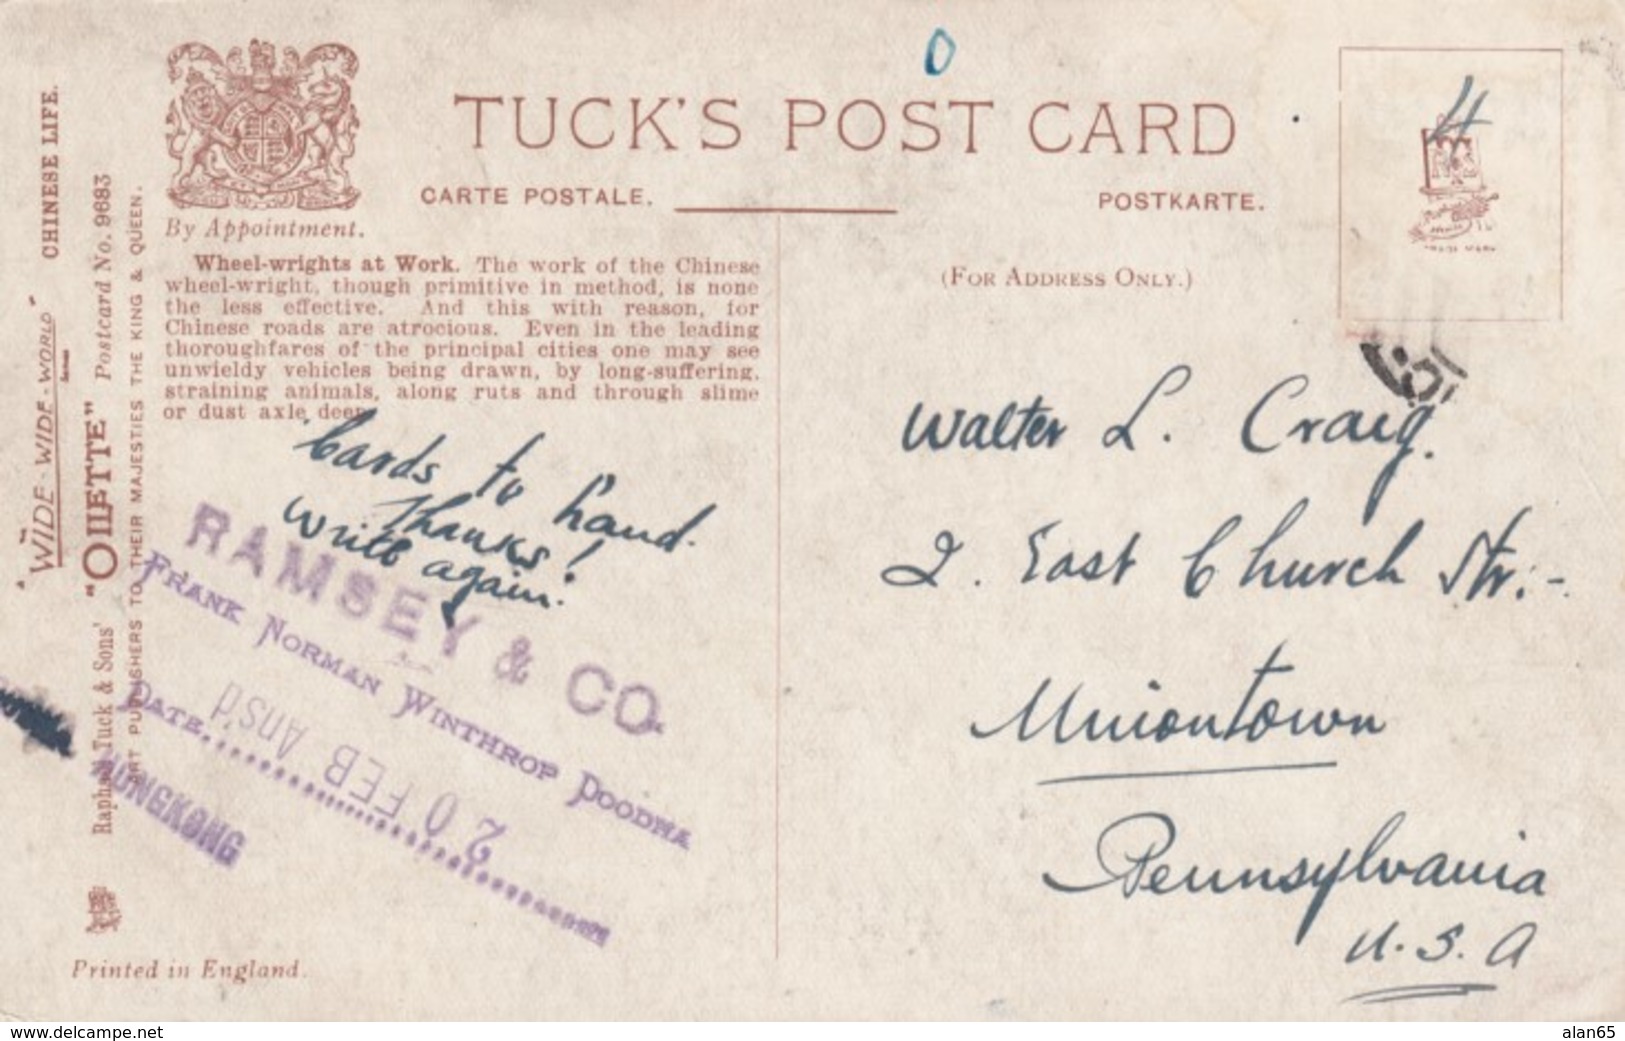 0
TUCK'S POST CARD
CARTE POSTALE.
POSTKARTE.
By Appointment.
4
(FOR ADDRESS ONLY.)
Wheel-wrights at Work. The work of the Chinese
wheel-wright, though primitive in method, is none
the less effective. And this with reason, for
Chinese roads are atrocious. Even in the leading
thoroughfares of the principal cities one may see
unwieldy vehicles being drawn, by long-suffering,
straining animals, along ruts and through slime
or dust axle deep.
Cards to hand.
Thanks!
Write again.
RAMSEY & CO
FRANK NORMAN WINTHROP POODHA
DATE
20 FEB Ans'd
HONGKONG
Walter L. Craig.
2. East Church Str:-
Uniontown
Pennsylvania
U.S.A
"WIDE-WIDE-WORLD" CHINESE LIFE.
Raphael Tuck & Sons' "OILETTE" Postcard No. 9683
ART PUBLISHERS TO THEIR MAJESTIES THE KING & QUEEN.
Printed in England.
www.delcampe.net
alan65